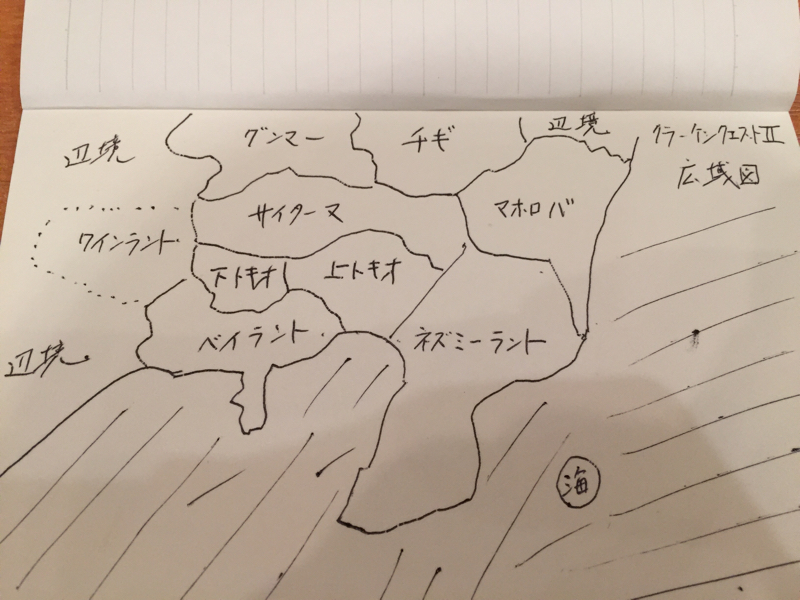 クラーケンクエストII
広域図
辺境
グンマー
チギ
辺境
サイターマ
マホロバ
ワインランド
下トキオ
上トキオ
ベイランド
ネズミーランド
辺境
海